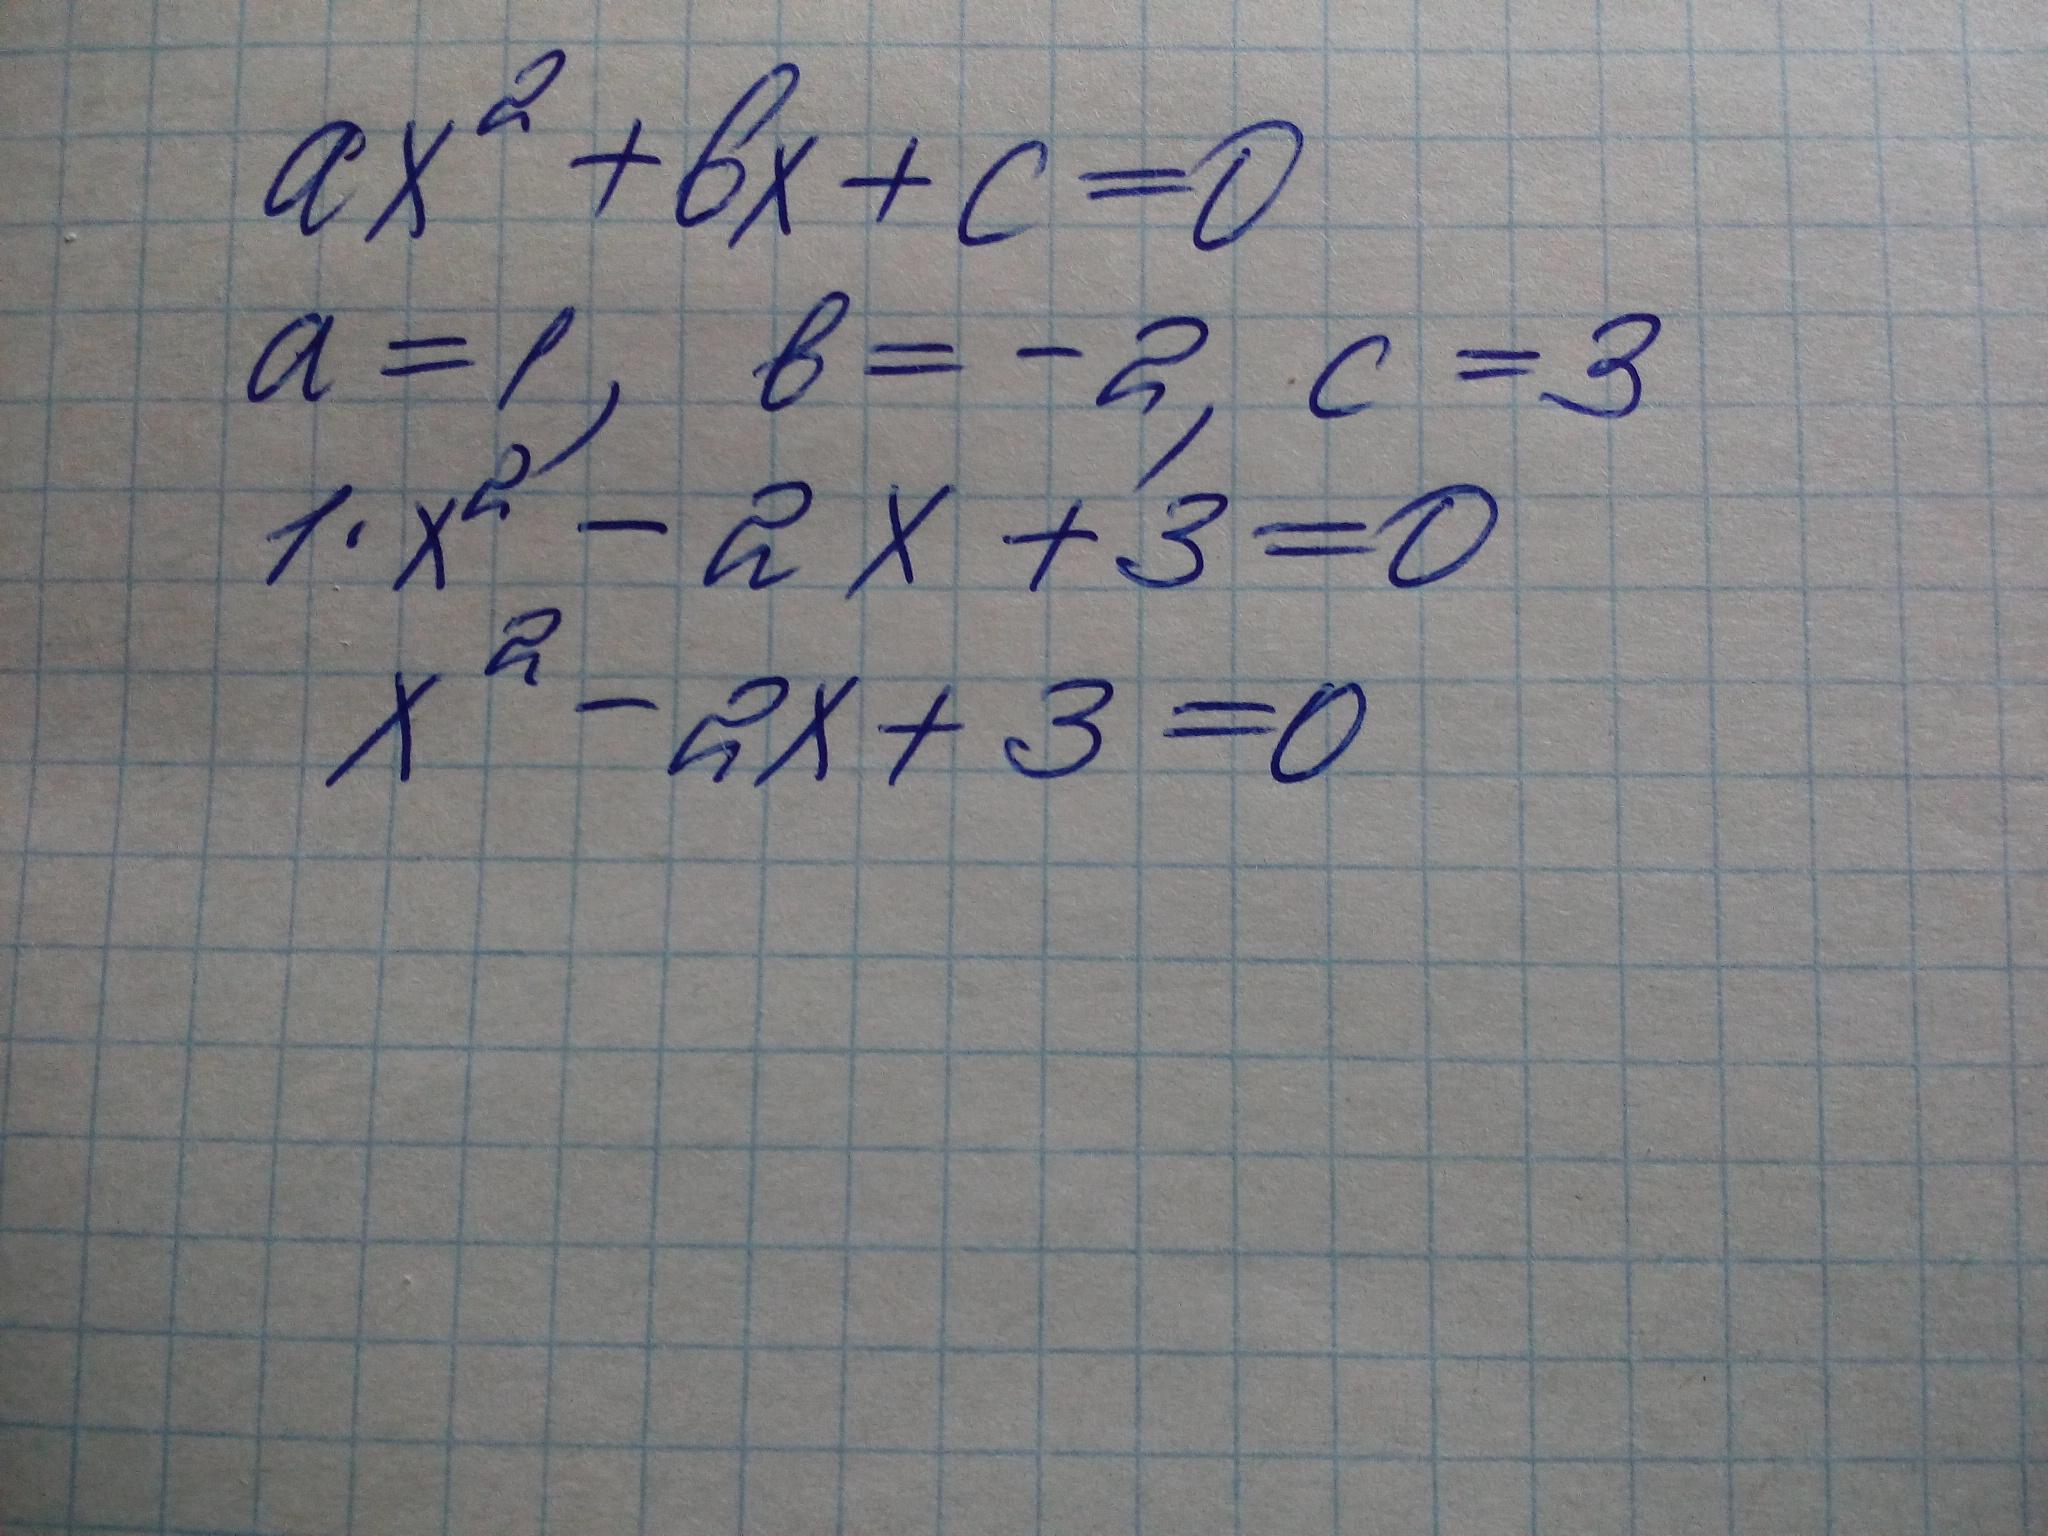 ax² + bx + c = 0
a = 1, b = -2, c = 3
1·x² - 2x + 3 = 0
x² - 2x + 3 = 0